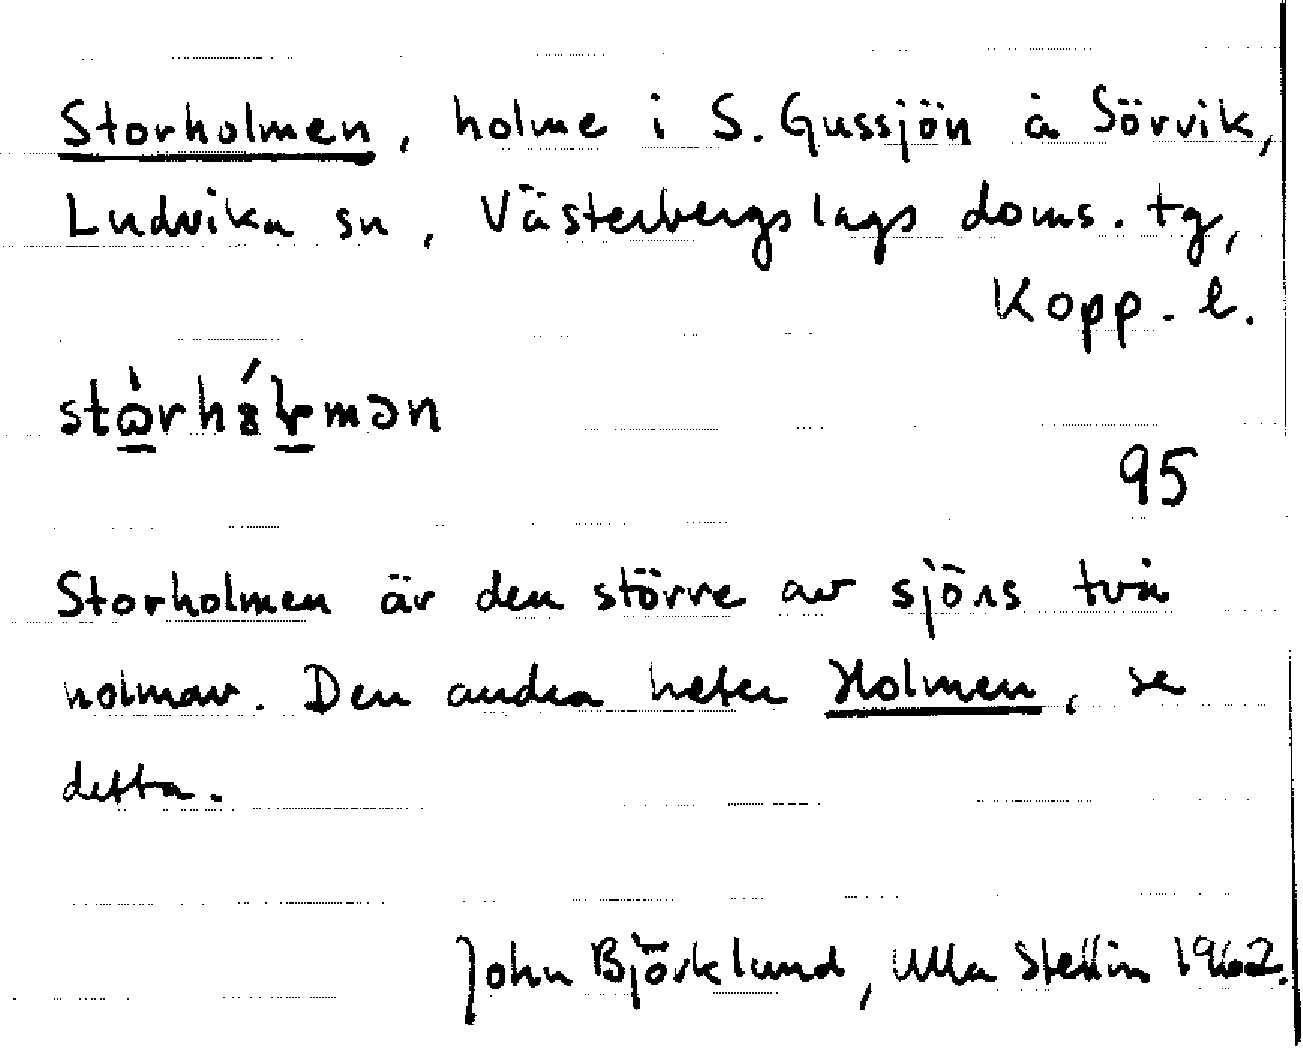 Storholmen, holme i S. Gussjön å Sörvik,
Ludvika sn, Västerbergslags doms. tg,
Kopp. l.
95
Storholmen är den större av sjöns två
holmar. Den andra heter Holmen, se
detta.
John Björklund, Ulla Stellin 1962.